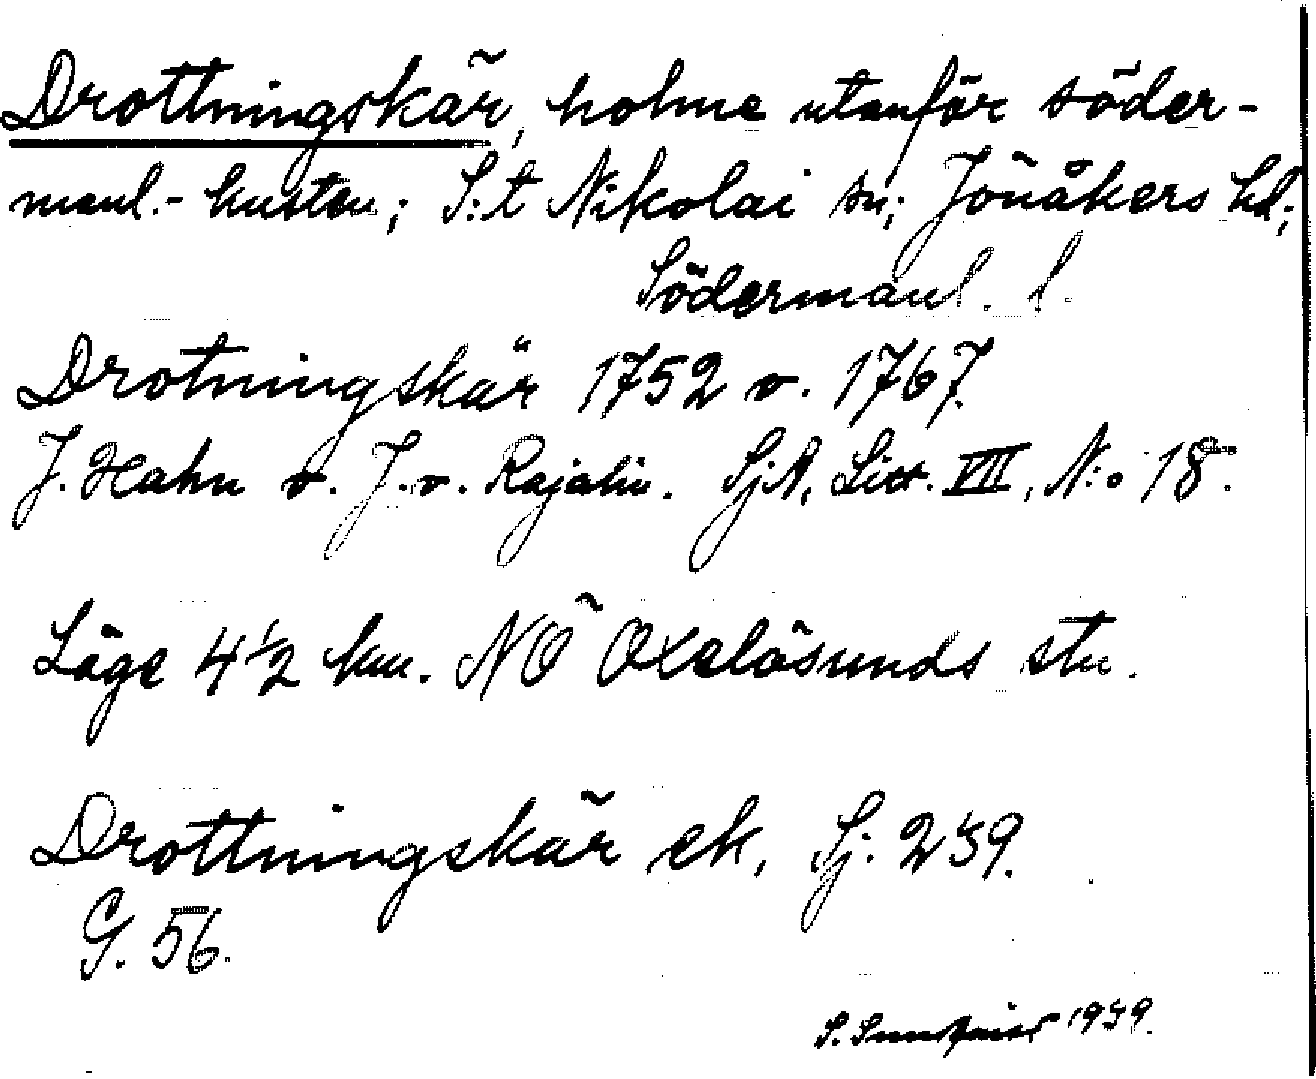 Drottningskär, holme utanför söder-
manl.-kusten; S:t Nikolai sn; Jönåkers hd;
Södermanl. l.
Drotningskär 1752 o. 1767.
J. Hahn o. J. v. Rajalin. SjA, Litt. VIII, N:o 18.
Läge 4 1/2 km. NO Oxelösunds stn.
Drottningskär ek. Sj. 239.
G. 56.
S. 1939.